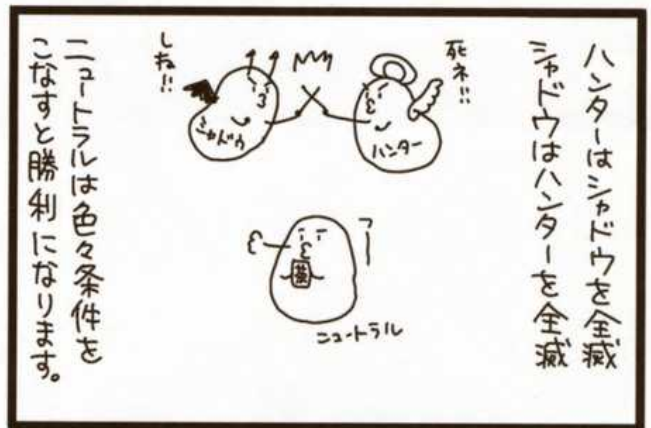 ハンターはシャドウを全滅
シャドウはハンターを全滅
死ネ!!
ハンター
しね!!
シャドウ
ニュートラル
ニュートラルは色々条件を
こなすと勝利になります。